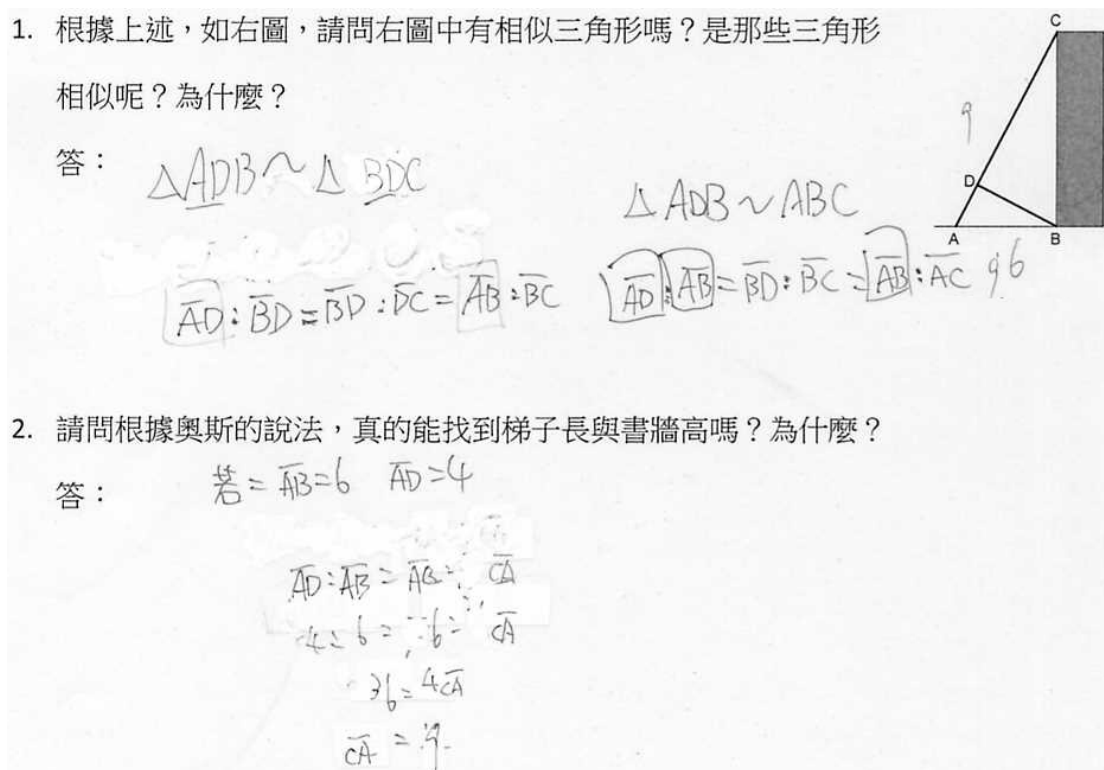 1. 根據上述，如右圖，請問右圖中有相似三角形嗎？是那些三角形
相似呢？為什麼？
答：
△ADB～△BDC
△ADB～ABC
AD:BD=BD:DC=AB:BC
AD:AB=BD:BC=AB:AC
C
9
D
A
B
9 6
2. 請問根據奧斯的說法，真的能找到梯子長與書牆高嗎？為什麼？
答：
若=AB=6 AD=4
AD:AB=AB:CA
4:6=6:CA
36=4CA
CA=9